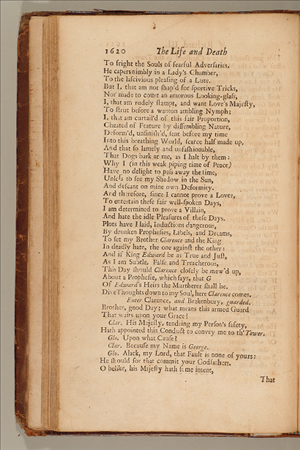 1620 The Life and Death
To fright the Souls of fearful Adversaries,
He capers nimbly in a Lady's Chamber,
To the lascivious pleasing of a Lute.
But I, that am not shap'd for sportive Tricks,
Nor made to court an amorous Looking-glass,
I, that am rudely stampt, and want Love's Majesty,
To strut before a wanton ambling Nymph;
I, that am curtail'd of this fair Proportion,
Cheated of Feature by dissembling Nature,
Deform'd, unfinish'd, sent before my time
Into this breathing World, scarce half made up,
And that so lamely and unfashionable,
That Dogs bark at me, as I halt by them:
Why I (in this weak piping time of Peace)
Have no delight to pass away the time,
Unless to see my Shadow in the Sun,
And descant on mine own Deformity.
And therefore, since I cannot prove a Lover,
To entertain these fair well-spoken Days,
I am determined to prove a Villain,
And hate the idle Pleasures of these Days.
Plots have I laid, inductions dangerous,
By drunken Prophasies, Libels, and Dreams,
To set my Brother Clarence and the King
In deadly hate, the one against the other:
And if King Edward be as True and Just,
As I am Subtle, False, and Treacherous,
This Day should Clarence closely be mew'd up,
About a Prophesie, which says, that G
Of Edward's Heirs the Murtherer shall be.
Dive Thoughts down to my Soul, here Clarence comes.
Enter Clarence, and Brakenbury, guarded.
Brother, good Day; what means this armed Guard
That waits upon your Grace?
Clar. His Majesty, tendring my Person's safety,
Hath appointed this Conduct to convey me to th' Tower.
Glo. Upon what Cause?
Clar. Because my Name is George.
Glo. Alack, my Lord, that Fault is none of yours:
He should for that commit your Godfathers.
O belike, his Majesty hath some intent,
That